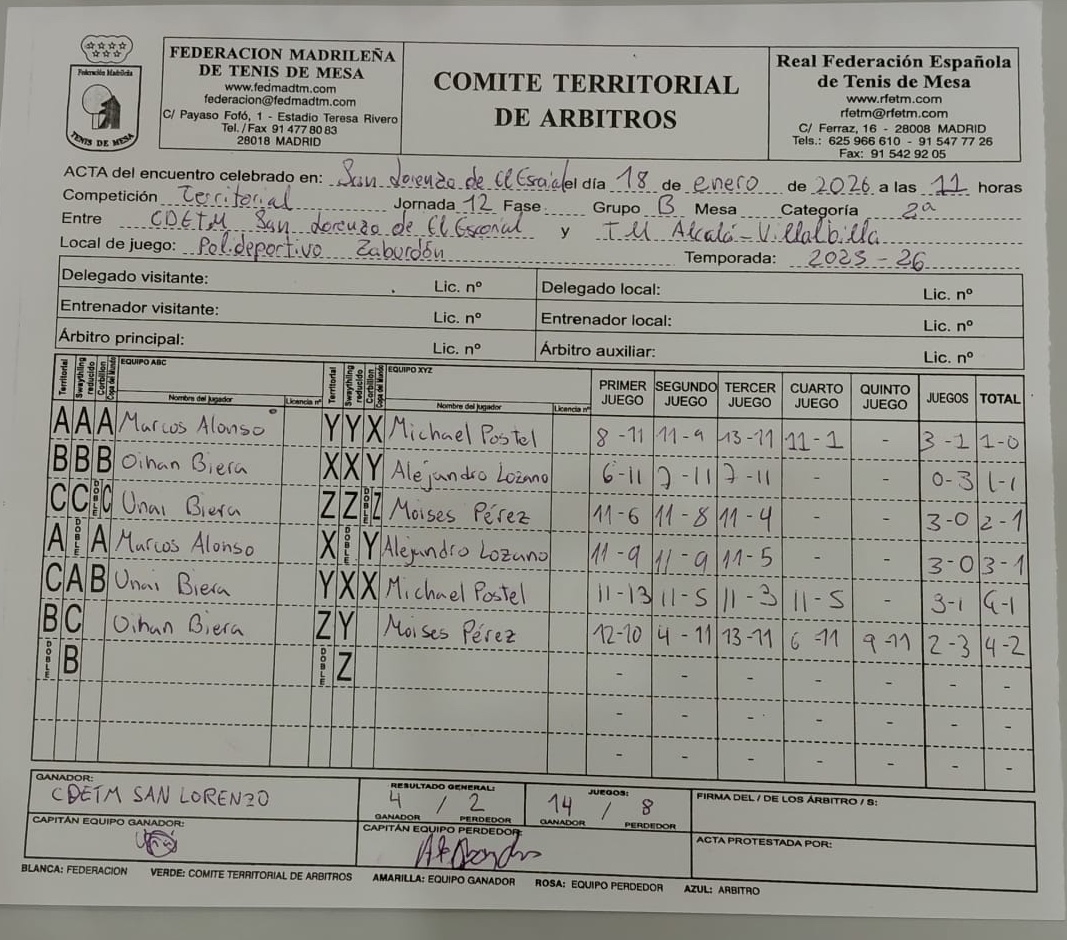 Federación Madrileña
TENIS DE MESA
FEDERACION MADRILEÑA
DE TENIS DE MESA
www.fedmadtm.com
federacion@fedmadtm.com
C/ Payaso Fofó, 1 - Estadio Teresa Rivero
Tel./Fax 91 477 80 83
28018 MADRID
COMITE TERRITORIAL
DE ARBITROS
Real Federación Española
de Tenis de Mesa
www.rfetm.com
rfetm@rfetm.com
C/ Ferraz, 16 - 28008 MADRID
Tels.: 625 966 610 - 91 547 77 26
Fax: 91 542 92 05
ACTA del encuentro celebrado en: San Lorenzo de El Escorial el día 18 de enero de 2026 a las 11 horas
Competición Territorial Jornada 12 Fase Grupo B Mesa Categoría 2ª
Entre CDETM San Lorenzo de El Escorial y TM Alcalá-Villalbilla
Local de juego: Polideportivo Zaburdón Temporada: 2025-26
Delegado visitante: Lic. nº Delegado local: Lic. nº
Entrenador visitante: Lic. nº Entrenador local: Lic. nº
Árbitro principal: Lic. nº Árbitro auxiliar: Lic. nº
Territorial Swaythling reducido Corbillon Copa del Mundo EQUIPO ABC Nombre del jugador Licencia nº Territorial Swaythling reducido Corbillon Copa del Mundo EQUIPO XYZ Nombre del jugador Licencia nº PRIMER JUEGO SEGUNDO JUEGO TERCER JUEGO CUARTO JUEGO QUINTO JUEGO JUEGOS TOTAL
A A A Marcos Alonso Y Y X Michael Postel 8-11 11-9 13-11 11-1 - 3-1 1-0
B B B Oihan Biera X X Y Alejandro Lozano 6-11 7-11 7-11 - - 0-3 1-1
C C DOBLE C Unai Biera Z Z DOBLE Z Moises Pérez 11-6 11-8 11-4 - - 3-0 2-1
A DOBLE A Marcos Alonso X DOBLE Y Alejandro Lozano 11-9 11-9 11-5 - - 3-0 3-1
C A B Unai Biera Y X X Michael Postel 11-13 11-5 11-3 11-5 - 3-1 4-1
B C Oihan Biera Z Y Moises Pérez 12-10 4-11 13-11 6-11 9-11 2-3 4-2
DOBLE B DOBLE Z - - - - - - -
- - - - - - -
- - - - - - -
GANADOR: CDETM SAN LORENZO
RESULTADO GENERAL: 4 / 2
GANADOR PERDEDOR
JUEGOS: 14 / 8
GANADOR PERDEDOR
FIRMA DEL / DE LOS ÁRBITRO / S:
CAPITÁN EQUIPO GANADOR:
CAPITÁN EQUIPO PERDEDOR:
ACTA PROTESTADA POR:
BLANCA: FEDERACION VERDE: COMITE TERRITORIAL DE ARBITROS AMARILLA: EQUIPO GANADOR ROSA: EQUIPO PERDEDOR AZUL: ARBITRO